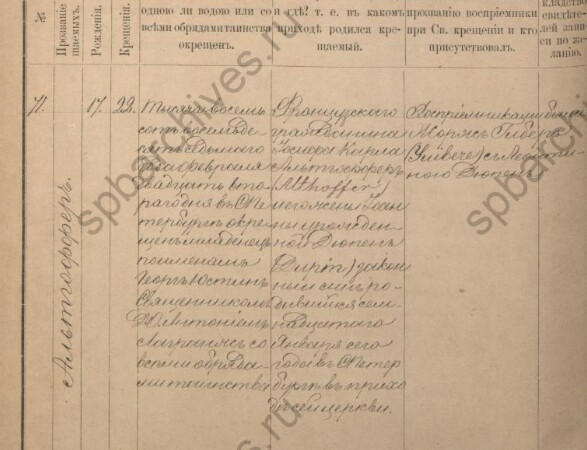 №
Прозваніе
щаемыхъ.
Рожденія.
Крещенія.
одною ли водою или со
всѣми обрядами таинства
крещенъ.
и гдѣ? т. е. въ какомъ
приходѣ родился кре-
щаемый.
прозванію воспріемники
при Св. крещеніи и кто
присутствовалъ.
кладство
свидѣте
лей запи
си по же
ланію.
71.
Альтгофферъ
17.
22.
Тысяча восемь
сотъ восемьде-
сятъ седьмого
года февраля
двадцать вто-
раго дня въ С. Пе
тербургѣ окре
щенъ младенецъ
по именамъ
Георгъ Юстинъ
Священникомъ
Антоніемъ
со
всѣми обряда-
ми таинства
Французскаго
гражданина
Іосифа Карла
Альтгофферъ
(Althoffer)
и его жены
ны урожден-
ной Дюпенъ
(Dupin) закон
ный сынъ ро-
дившійся сем-
надцатаго
Января сего
года въ С. Петер
бургѣ въ прихо
дѣ сей церкви.
Воспріемниками были
Морисъ
съ
Дюпенъ
spbarchives.ru